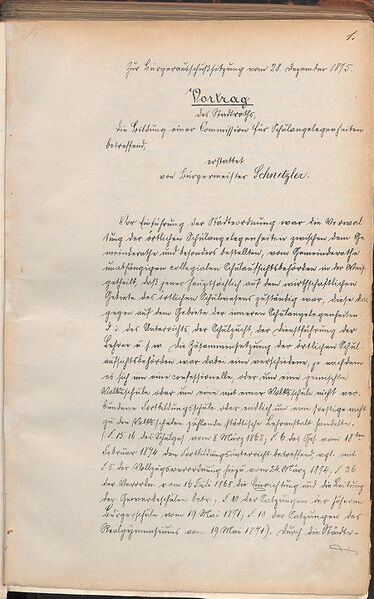 1.
Zur Bürgerausschußsitzung vom 28. Dezember 1875.
Vortrag
des Stadtraths,
die Bildung einer Commission für Schulangelegenheiten
betreffend,
erstattet
von Bürgermeister Schnetzler.
Vor Einführung der Städteordnung war die Verwal-
tung der örtlichen Schulangelegenheiten zwischen dem Ge-
meinderathe und besonders bestellten, vom Gemeinderathe
unabhängigen collegialen Schulaufsichtsbehörden in der Weise
getheilt, daß jener hauptsächlich auf dem wirthschaftlichen
Gebiete des örtlichen Schulwesens zuständig war, diese da-
gegen auf dem Gebiete der inneren Schulangelegenheiten
d. i. des Unterrichts der Schulzucht, der Dienstführung der
Lehrer u. s. w. Die Zusammensetzung der örtlichen Schul-
aufsichtsbehörden war dabei eine verschiedene, je nachdem
es sich um eine confessionelle, oder um eine gemischte
Volksschule oder um eine mit einer Volksschule nicht ver-
bundene Fortbildungsschule oder endlich um eine sonstige nicht
zu den Volksschulen zählende städtische Lehranstalt handelte.
§. 13. 16 des Schulges. vom 8. März 1868, §. 6 des Ges. vom 18ten
Februar 1874 den Fortbildungsunterricht betreffend vgl. mit
§. 5 der Vollzugsverordnung hiezu vom 24. März 1874. §. 36
der Verordn. vom 16 Juli 1868 die Einrichtung und die Leitung
der Gewerbeschulen betr., §. 10 der Satzungen der höheren
Bürgerschule vom 19 Mai 1871; §. 10 der Satzungen des
Realgymnasiums vom 19 Mai 1871). Durch die Städte-